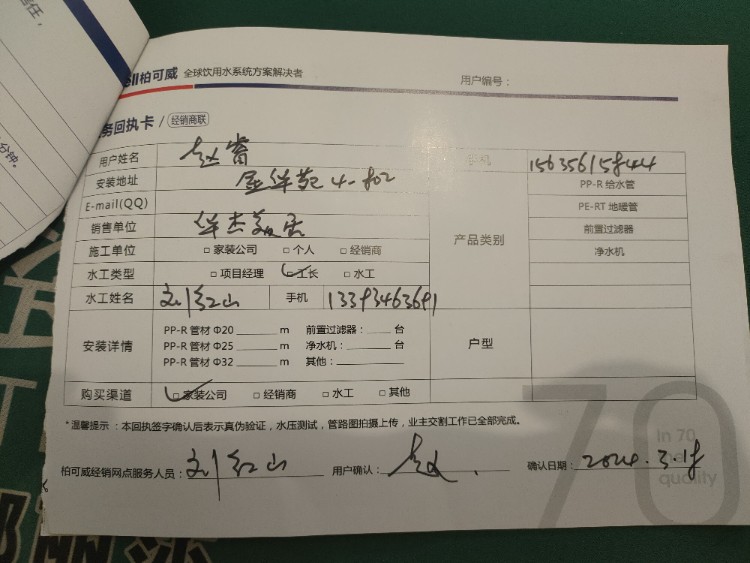 ll柏可威 全球饮用水系统方案解决者
用户编号：
务回执卡 / 经销商联
用户姓名 赵
手机 15635615844
安装地址 苑 4-802
E-mail(QQ)
销售单位 华杰
施工单位 □ 家装公司 □ 个人 □ 经销商
水工类型 □ 项目经理 □ 工长 □ 水工
水工姓名 刘红山 手机 13393463691
产品类别
PP-R 给水管
PE-RT 地暖管
前置过滤器
净水机
安装详情
PP-R 管材 Φ20 ______ m 前置过滤器：____ 台
PP-R 管材 Φ25 ______ m 净水机：______ 台
PP-R 管材 Φ32 ______ m 其他：______
户型
购买渠道 □ 家装公司 □ 经销商 □ 水工 □ 其他
*温馨提示：本回执签字确认后表示真伪验证，水压测试，管路图拍摄上传，业主交割工作已全部完成。
柏可威经销网点服务人员：刘红山 用户确认：赵 确认日期：2024.3.18
70
in 70
quality